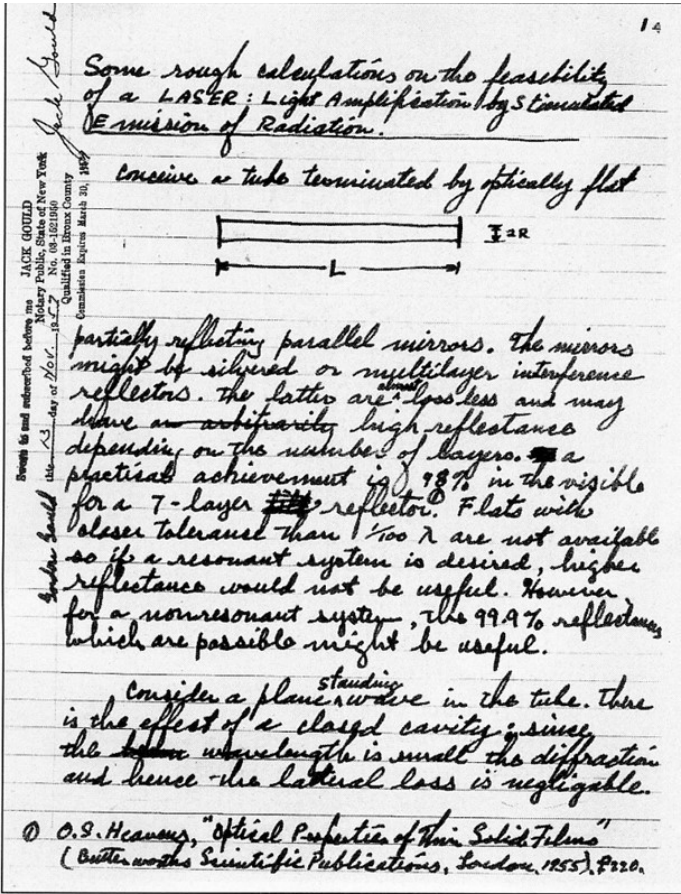 14
Some rough calculations on the feasibility
of a LASER: Light Amplification by Stimulated
Emission of Radiation.
conceive a tube terminated by optically flat
2R
L
partially reflecting parallel mirrors. The mirrors
might be silvered or multilayer interference
reflectors. The latter are almost lossless and may
have an arbitrarily high reflectance
depending on the number of layers. a
practical achievement is 98% in the visible
for a 7-layer reflector.① Flats with
closer tolerance than 1/100 λ are not available
so if a resonant system is desired, higher
reflectance would not be useful. However,
for a nonresonant system, the 99.9% reflectances
which are possible might be useful.
Consider a plane standing wave in the tube. There
is the effect of a closed cavity; since
the wavelength is small the diffraction
and hence the lateral loss is negligable.
① O.S. Heavens, "Optical Properties of Thin Solid Films"
(Butterworths Scientific Publications, London, 1955), P220.
Gordon Gould
Sworn to and subscribed before me
this 13 day of Nov. 1957
JACK GOULD
Notary Public, State of New York
No. 03-1521950
Qualified in Bronx County
Commission Expires March 30,
Jack Gould